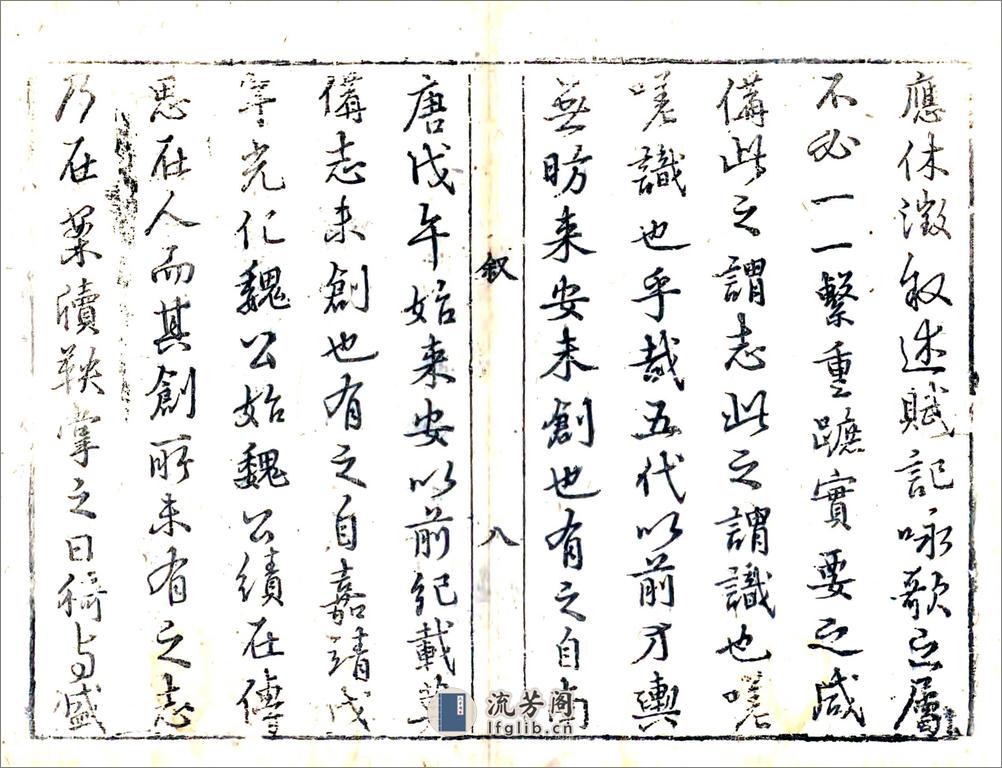 應休徵敘述賦記咏歌之屬
不必一一繫重蹠實要之咸
備此之謂志此之謂識也嗟
嗟識也乎哉五代以前方輿
無昉来安未創也有之自南
唐戊午始来安以前紀載
備志未創也有之自嘉靖戊
午光化魏公始魏公績在傳
思在人而其創所未有之志
乃在案牘鞅掌之日猗与盛
叙
八
流芳阁
lfglib.cn